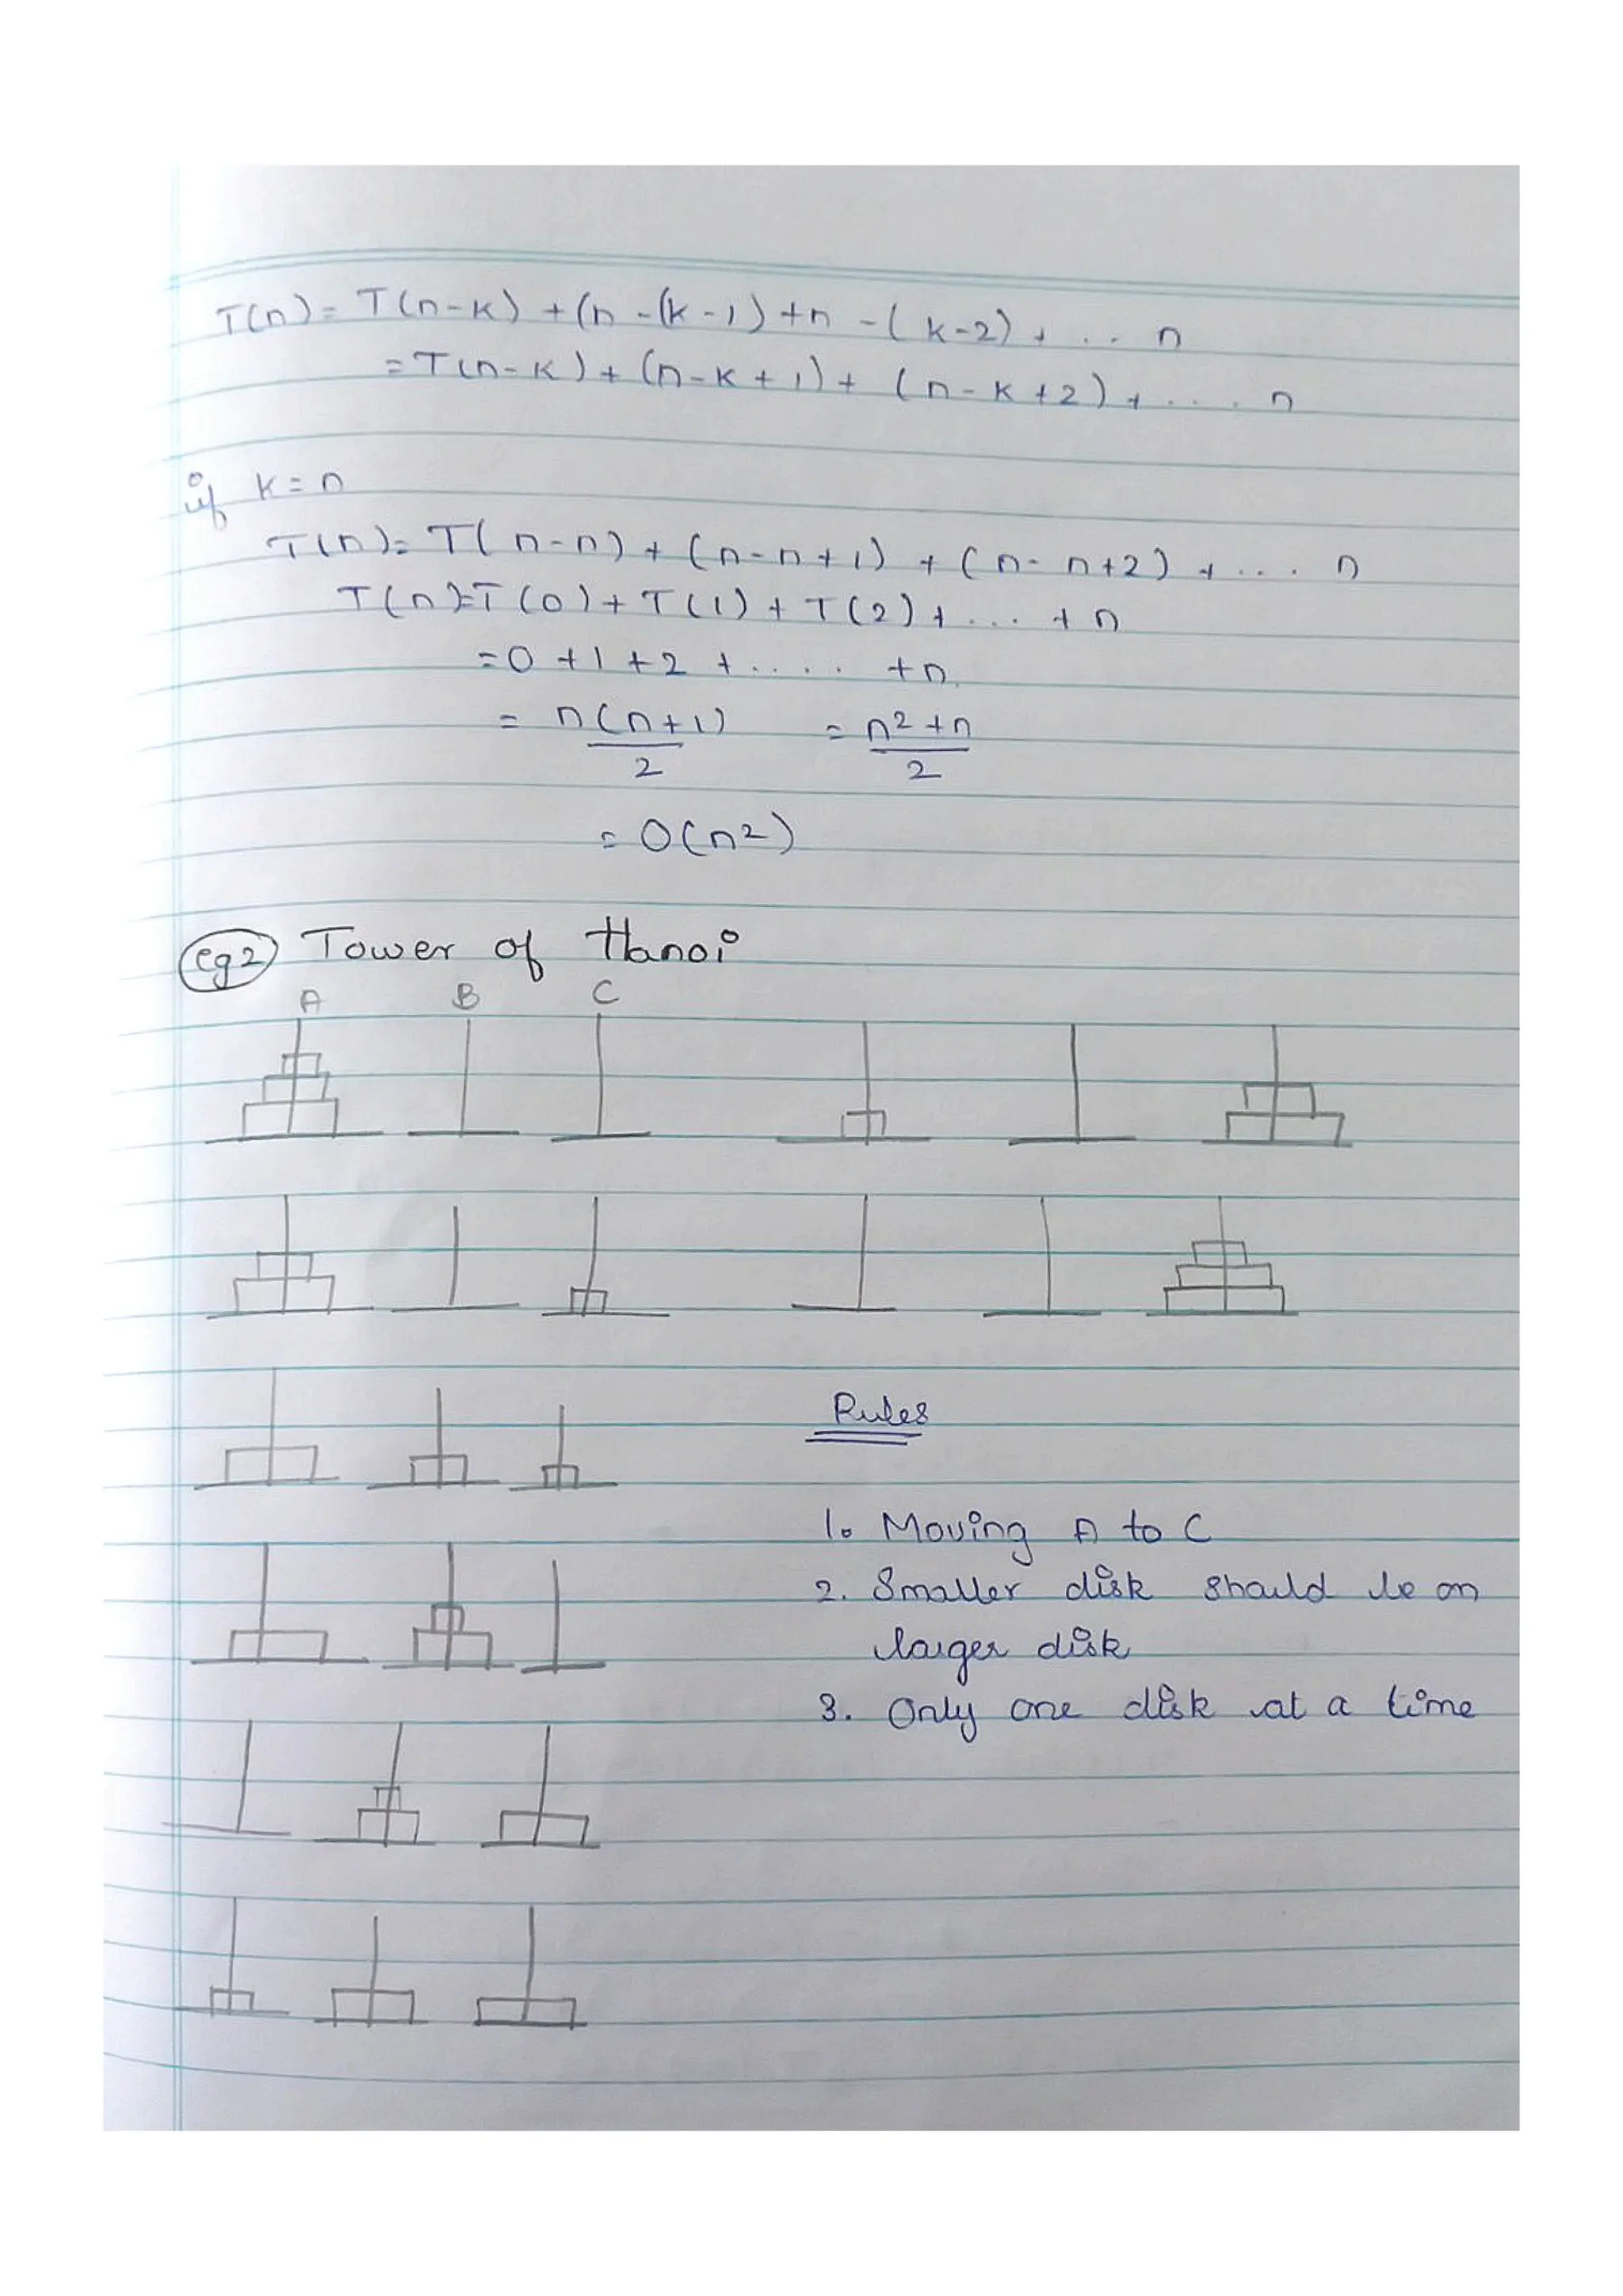 T(n) = T(n-k) + (n - (k-1) + n - (k-2) + ... n
= T(n-k) + (n-k+1) + (n-k+2) + .... n
if k = n
T(n) = T(n-n) + (n-n+1) + (n-n+2) + ... n
T(n) = T(0) + T(1) + T(2) + ... + n
= 0 + 1 + 2 + .... + n
= n(n+1)/2 = n²+n/2
= O(n²)
eg2 Tower of Hanoi
A B C
Rules
1. Moving A to C
2. Smaller disk should be on
larger disk
3. Only one disk at a time